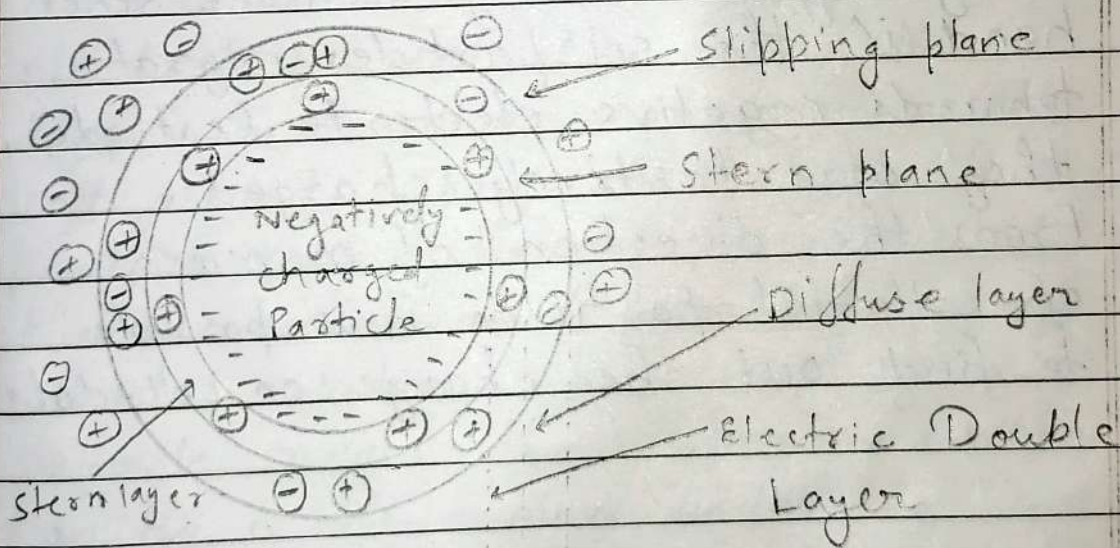 Slipping plane
Stern plane
Negatively
charged
Particle
Diffuse layer
Electric Double
Layer
Stern layer